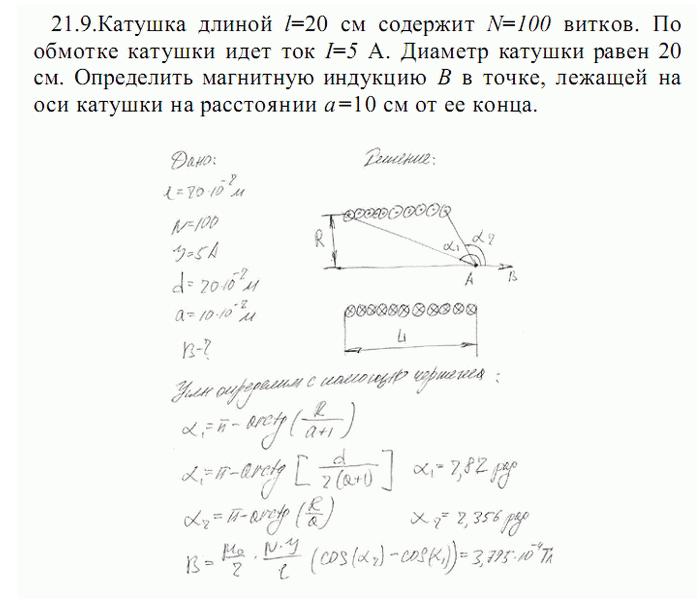 21.9.Катушка длиной l=20 см содержит N=100 витков. По
обмотке катушки идет ток I=5 А. Диаметр катушки равен 20
см. Определить магнитную индукцию B в точке, лежащей на
оси катушки на расстоянии a=10 см от ее конца.
Дано:
Решение:
l=20·10⁻² м
N=100
I=5А
d=20·10⁻² м
a=10·10⁻² м
B-?
R
α₁
α₂
A
B
L
Углы определим с помощью чертежа:
α₁=π-arctg(R/(a+l))
α₁=π-arctg[d/(2(a+l))] α₁=2,82 рад
α₂=π-arctg(R/a) α₂=2,356 рад
B=μ₀/2·N·I/l(cos(α₂)-cos(α₁))=3,795·10⁻⁴Тл